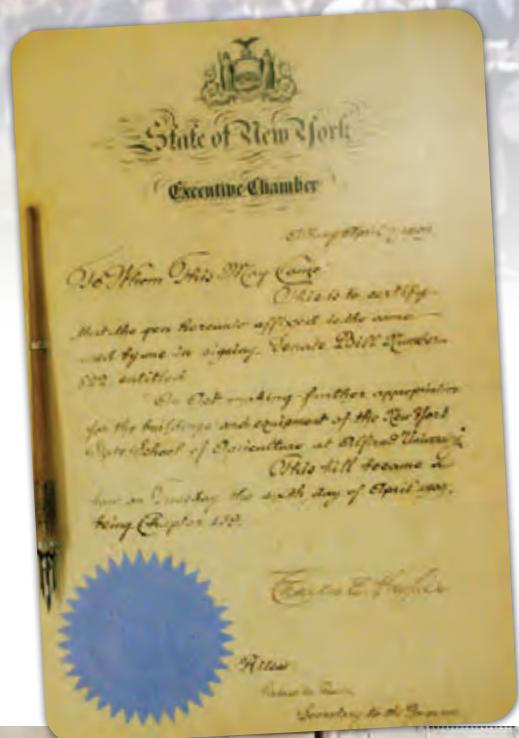 State of New York
Executive Chamber
Albany April 7, 1909
To Whom This May Come
This is to certify
that the pen herewith affixed is the same
used by me in signing Senate Bill Number
entitled
An Act making further appropriation
for the buildings and equipment of the New York
State School of Agriculture at Alfred University
This bill became a
law on Tuesday the sixth day of April 1909,
being Chapter
Charles E. Hughes
Attest
Secretary to the Governor